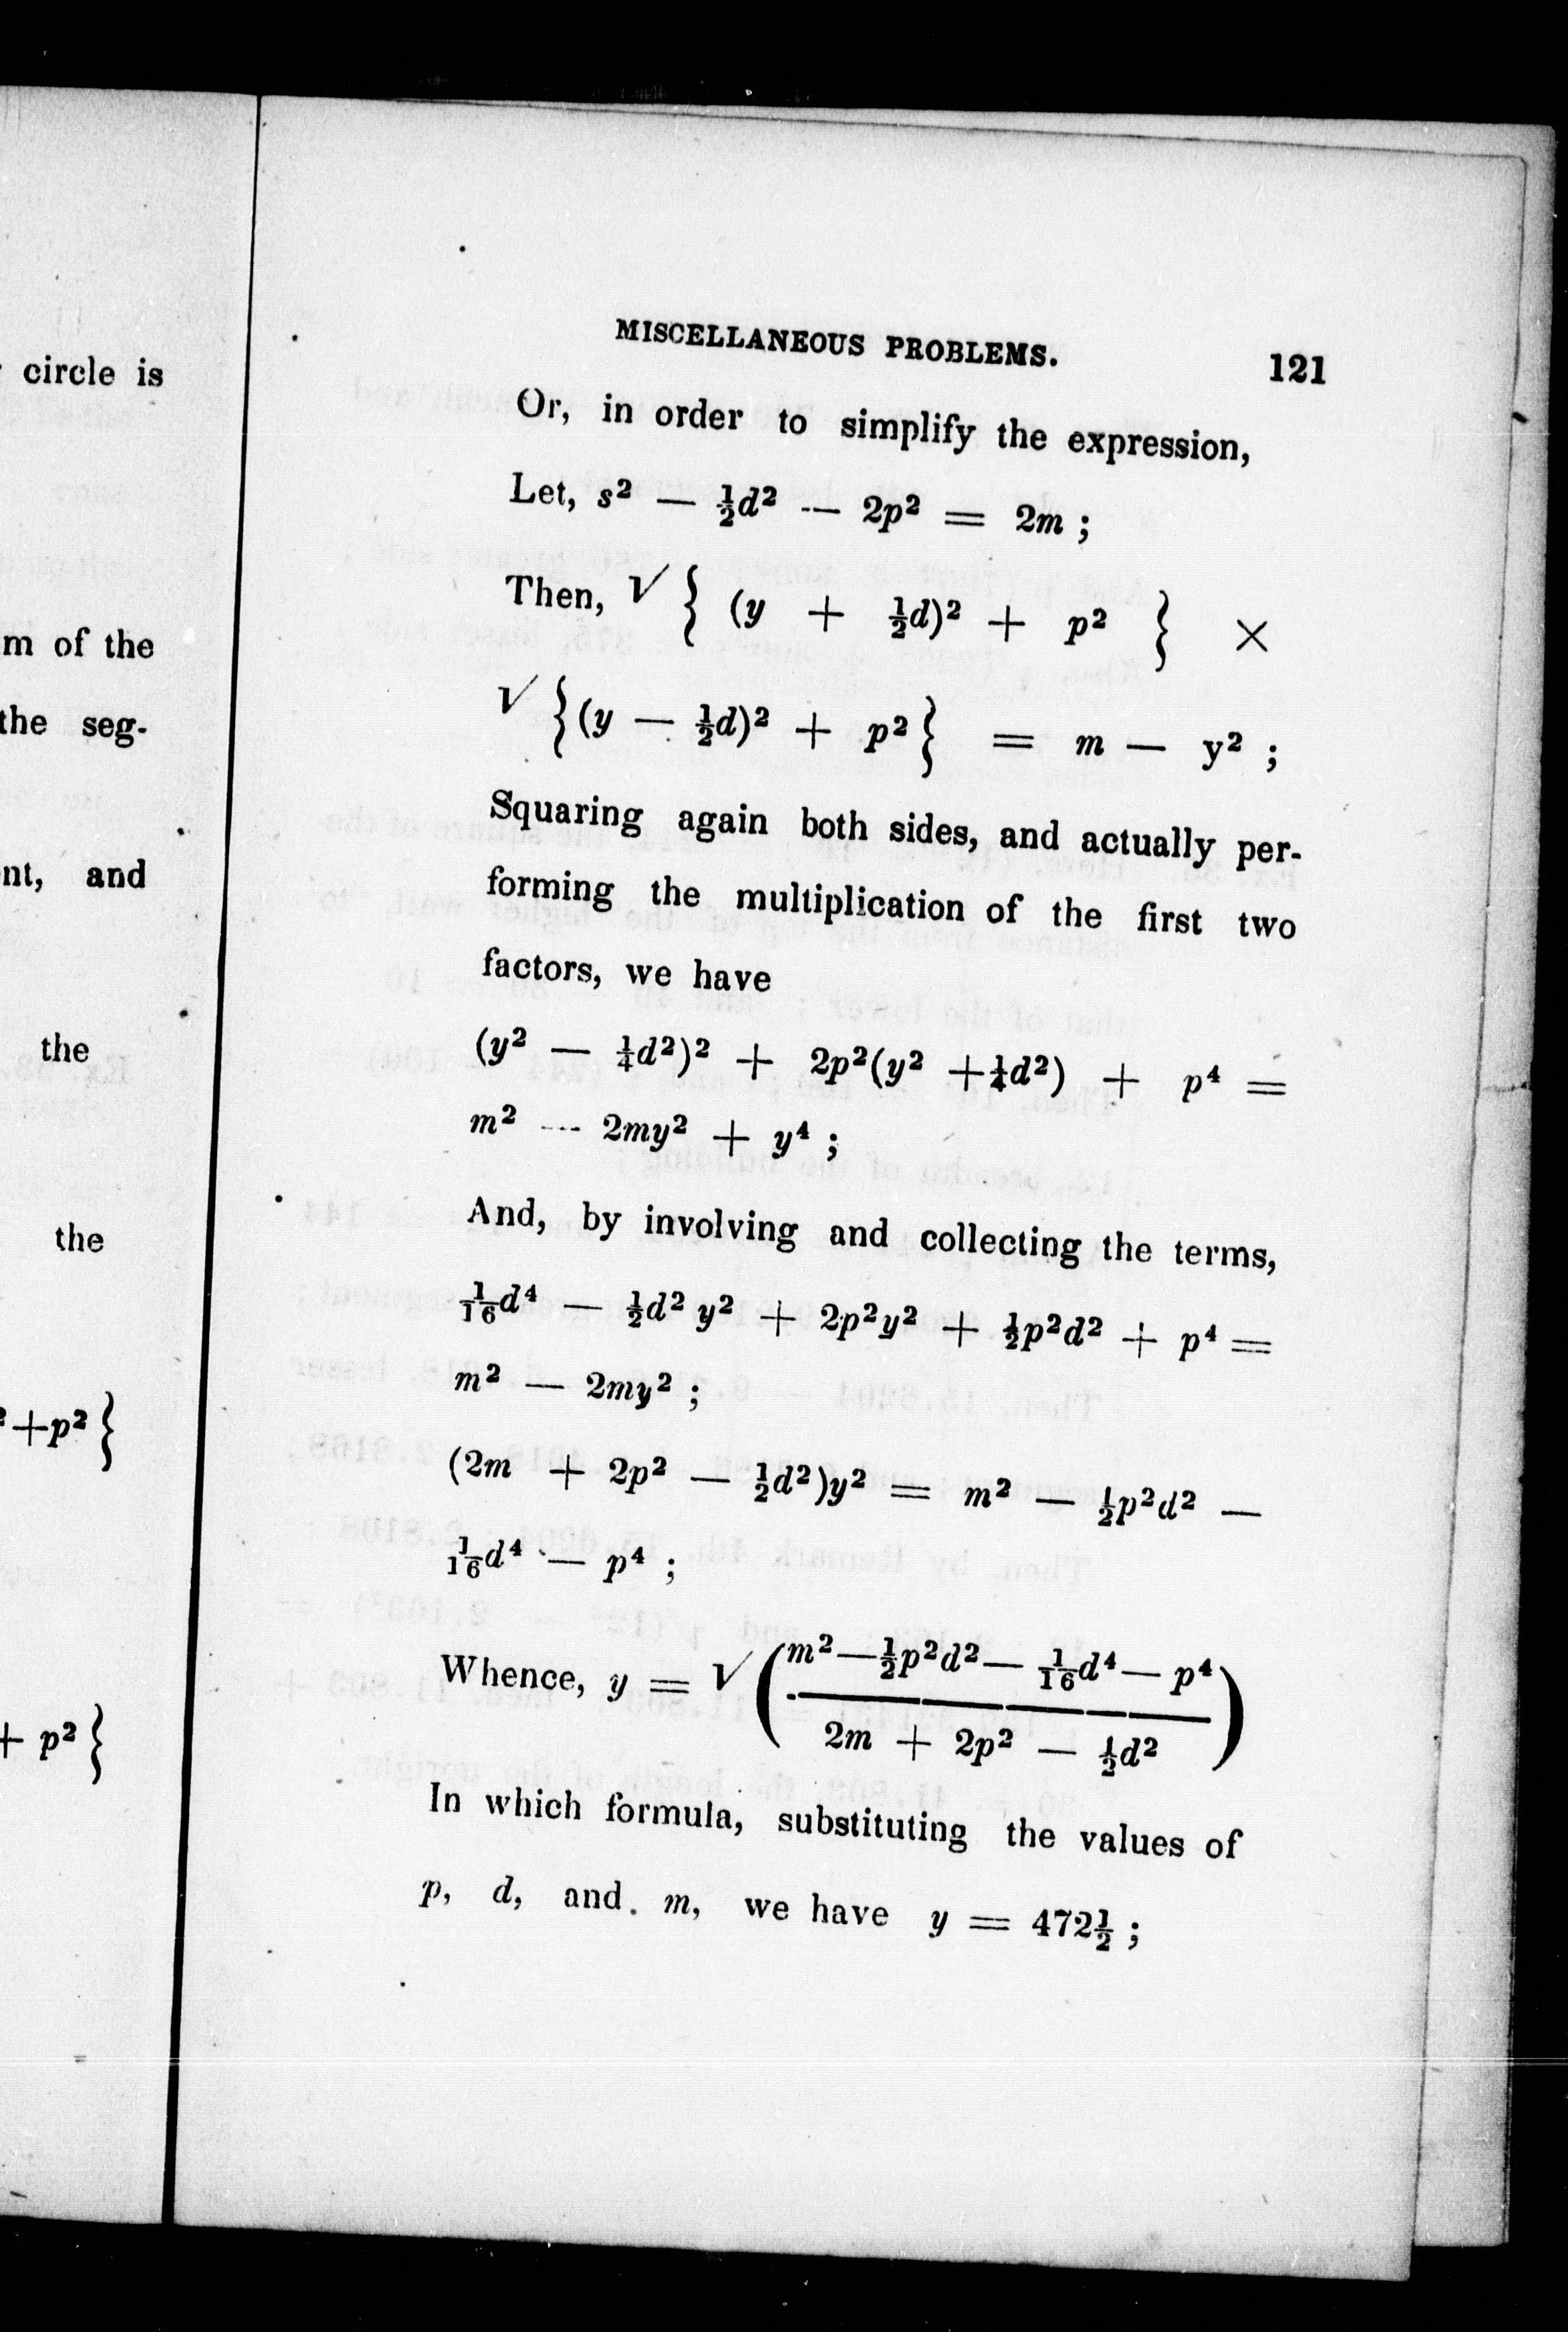 circle is
m of the
the seg-
nt, and
the
the
²+p² }
+ p² }
MISCELLANEOUS PROBLEMS. 121
Or, in order to simplify the expression,
Let, s² — ½d² — 2p² = 2m ;
Then, √ { (y + ½d)² + p² } ×
√ {(y — ½d)² + p²} = m — y² ;
Squaring again both sides, and actually per-
forming the multiplication of the first two
factors, we have
(y² — ¼d²)² + 2p²(y² +¼d²) + p⁴ =
m² — 2my² + y⁴ ;
And, by involving and collecting the terms,
1/16d⁴ — ½d² y² + 2p²y² + ½p²d² + p⁴ =
m² — 2my² ;
(2m + 2p² — ½d²)y² = m² — ½p²d² —
1/16d⁴ — p⁴ ;
Whence, y = √ ( m²—½p²d²— 1/16d⁴— p⁴ )
2m + 2p² — ½d²
In which formula, substituting the values of
p, d, and m, we have y = 472½ ;